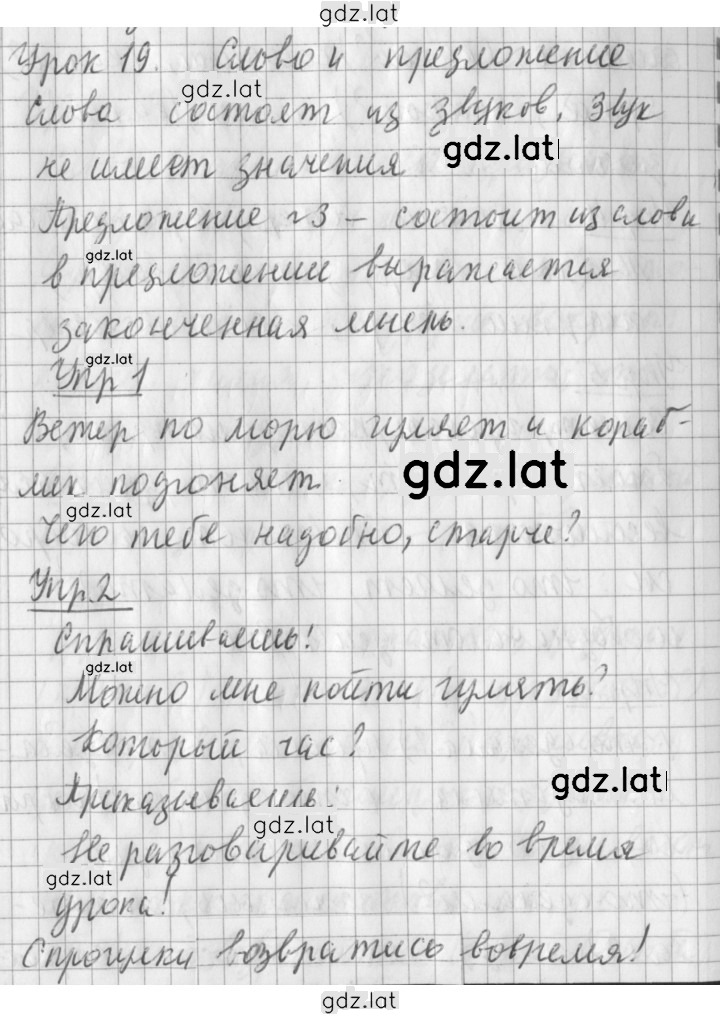 gdz.lat
Урок 19. Слово и предложение
gdz.lat
Слова состоят из звуков. Звук
gdz.lat
не имеет значения
Предложение №3 – состоит из слов и
gdz.lat
в предложении выражается
законченная мысль.
gdz.lat
Упр 1
Ветер по морю гуляет и кораб-
gdz.lat
лик подгоняет.
gdz.lat
Чего тебе надобно, старче?
Упр. 2
Спрашиваешь!
gdz.lat
Можно мне пойти гулять?
Который час?
gdz.lat
Приказываешь:
gdz.lat
Не разговаривайте во время
gdz.lat
урока!
С прогулки возвратись вовремя!
gdz.lat